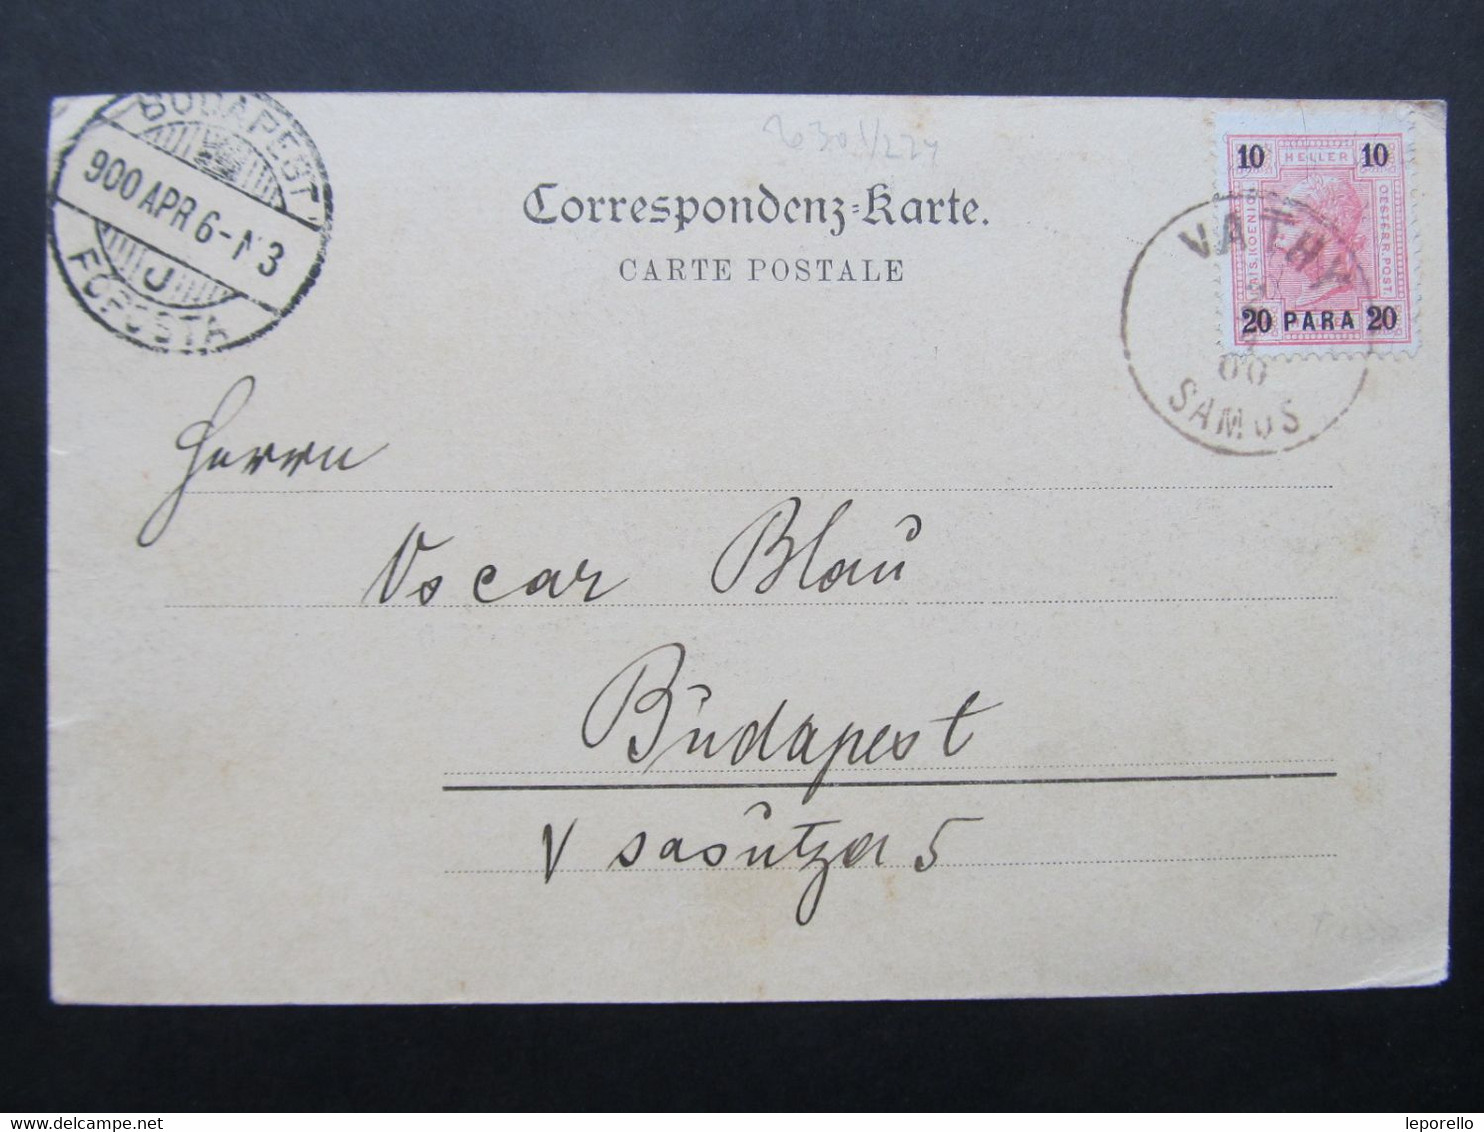 BUDAPEST
900 APR 6-N3
J
FŐPOSTA
Correspondenz-Karte.
CARTE POSTALE
10 HELLER 10
KAIS.KOENIGL
OESTERR.POST.
20 PARA 20
VATHY
00
SAMOS
Herrn
Oscar Blau
Budapest
V sasutza 5
leporello